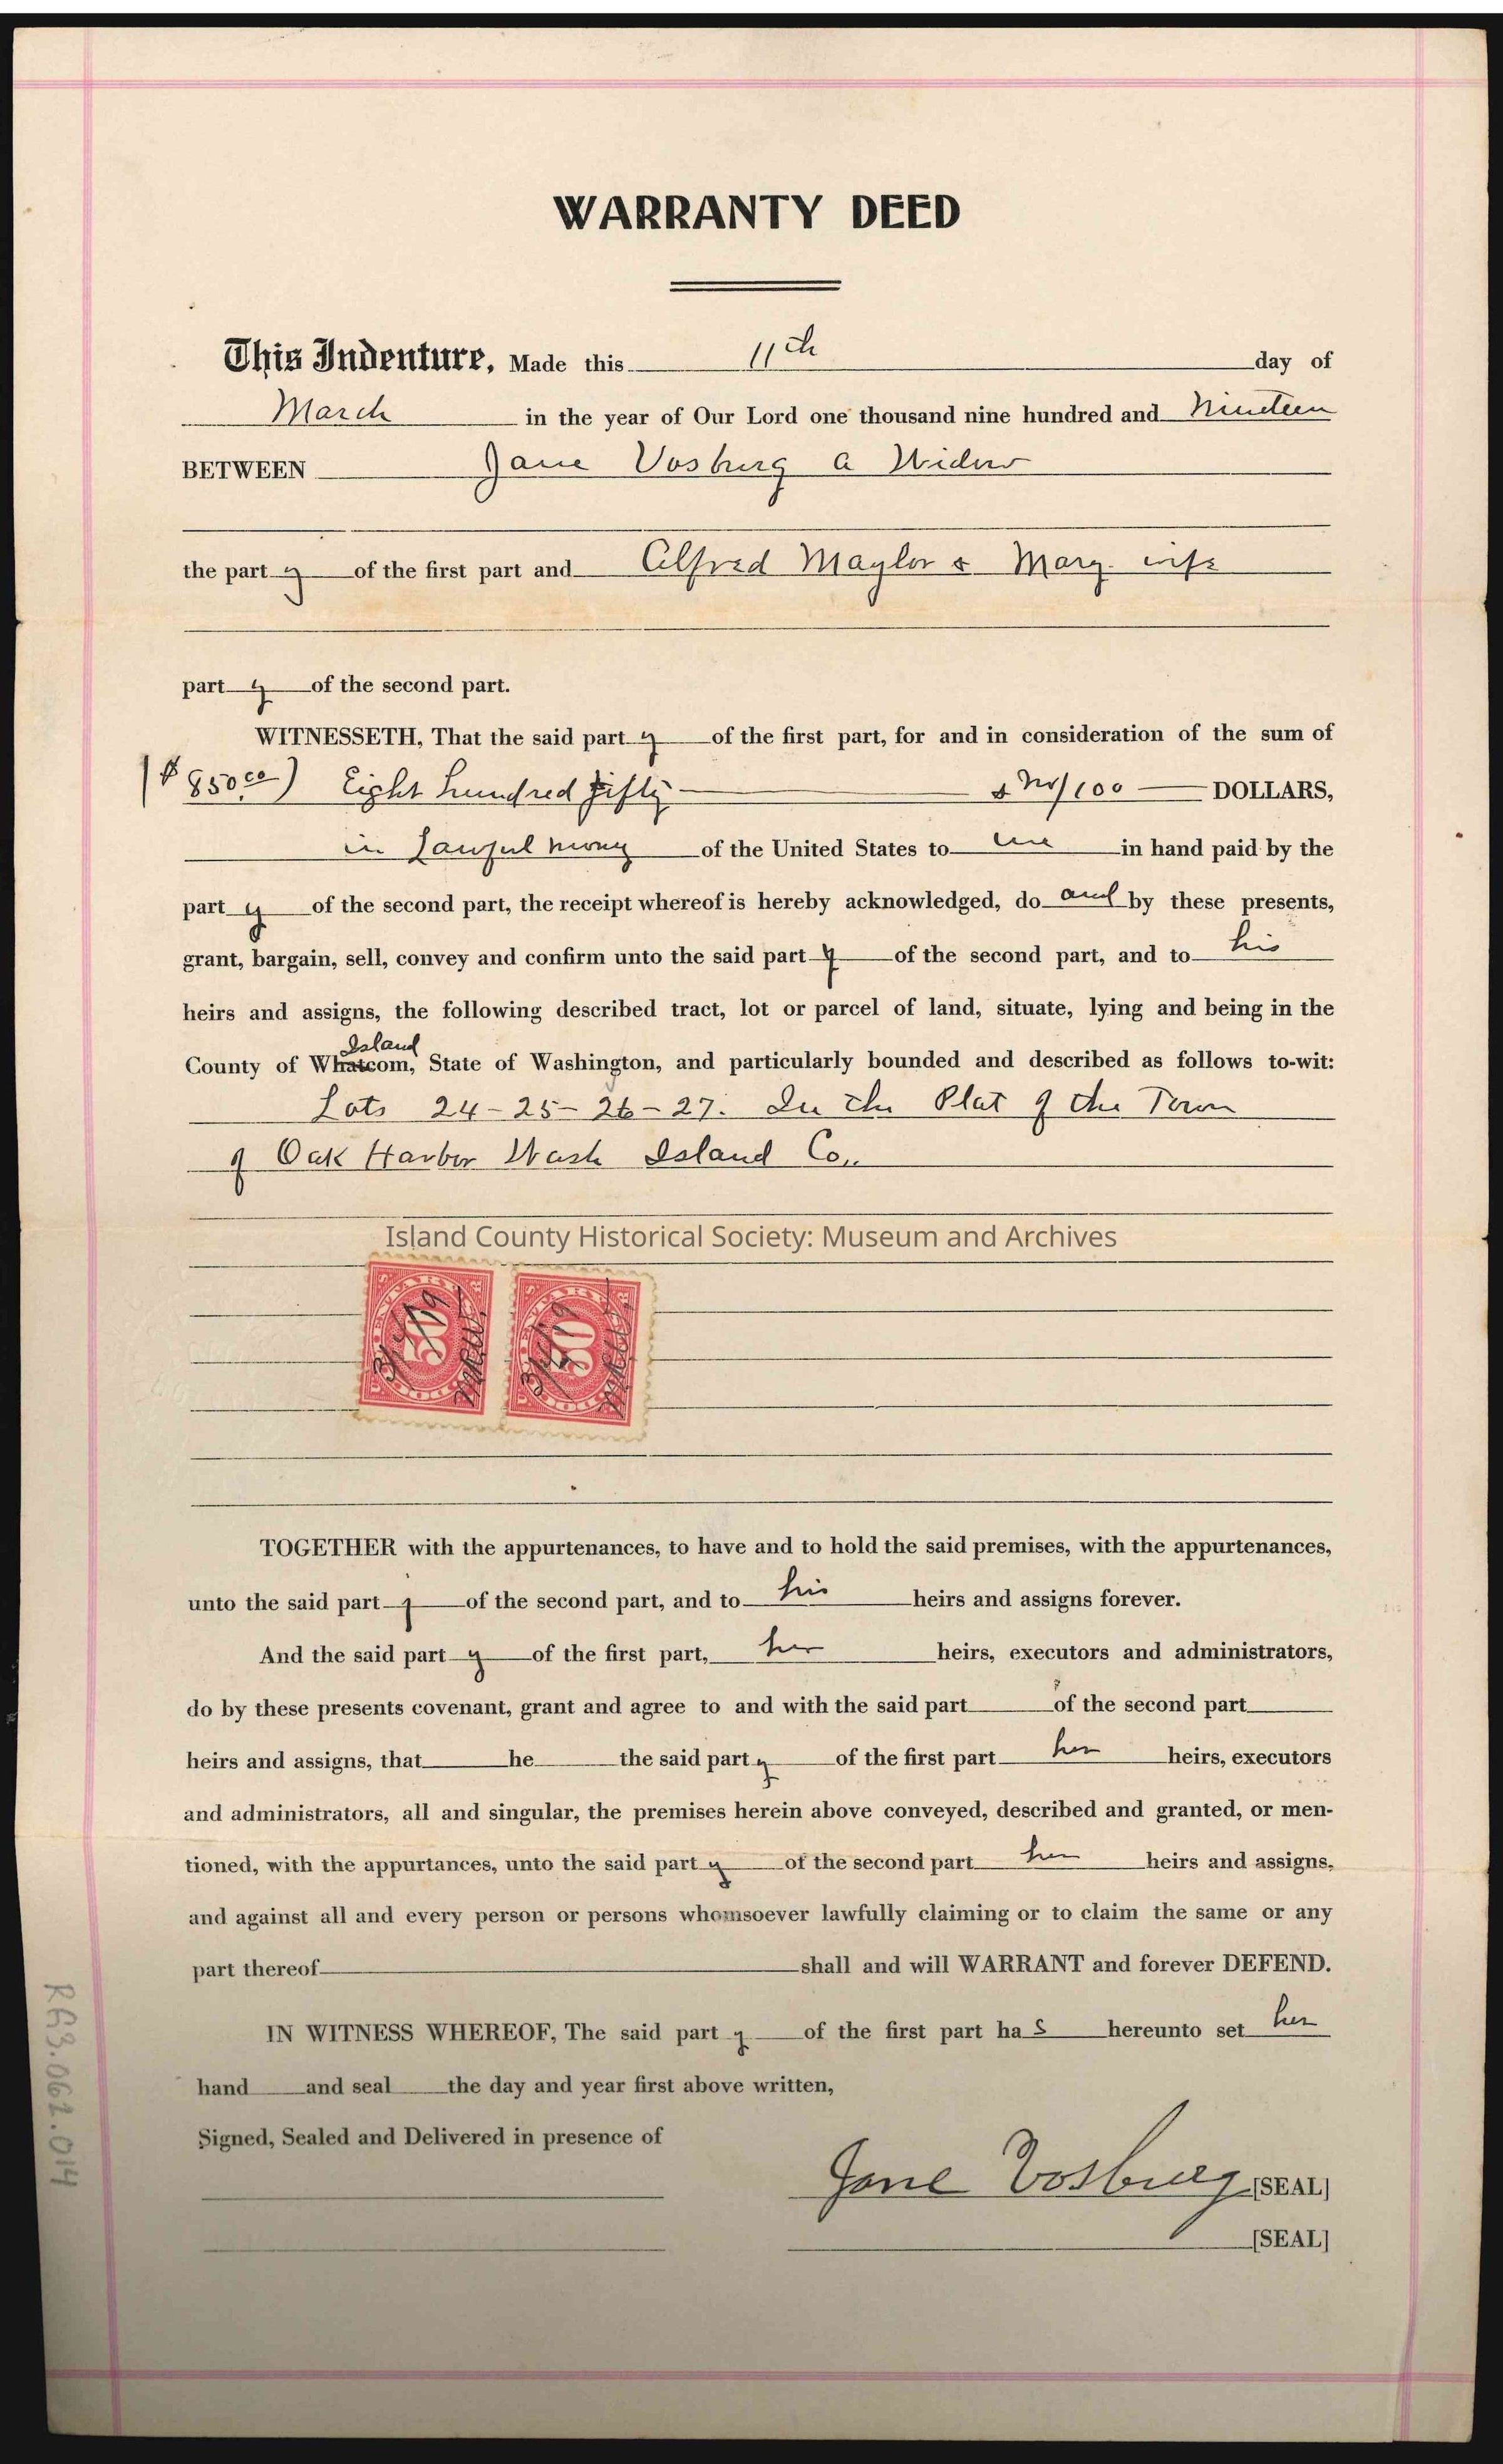 WARRANTY DEED
This Indenture, Made this 11th day of
March in the year of Our Lord one thousand nine hundred and Nineteen
BETWEEN Jane Vosburg a Widow
the part y of the first part and Alfred Maylor & Mary wife
part y of the second part.
WITNESSETH, That the said part y of the first part, for and in consideration of the sum of
($850 00) Eight hundred fifty & no/100 DOLLARS,
in Lawful money of the United States to me in hand paid by the
part y of the second part, the receipt whereof is hereby acknowledged, do and by these presents,
grant, bargain, sell, convey and confirm unto the said part y of the second part, and to his
heirs and assigns, the following described tract, lot or parcel of land, situate, lying and being in the
Island
County of Whatcom, State of Washington, and particularly bounded and described as follows to-wit:
Lots 24-25-26-27. In the Plat of the Town
of Oak Harbor Wash Island Co.
Island County Historical Society: Museum and Archives
50 50
TOGETHER with the appurtenances, to have and to hold the said premises, with the appurtenances,
unto the said part y of the second part, and to his heirs and assigns forever.
And the said part y of the first part, her heirs, executors and administrators,
do by these presents covenant, grant and agree to and with the said part of the second part
heirs and assigns, that he the said part y of the first part her heirs, executors
and administrators, all and singular, the premises herein above conveyed, described and granted, or men-
tioned, with the appurtances, unto the said part y of the second part her heirs and assigns,
and against all and every person or persons whomsoever lawfully claiming or to claim the same or any
part thereof shall and will WARRANT and forever DEFEND.
IN WITNESS WHEREOF, The said part y of the first part ha s hereunto set her
hand and seal the day and year first above written,
Signed, Sealed and Delivered in presence of
Jane Vosburg [SEAL]
[SEAL]
RG3.062.014